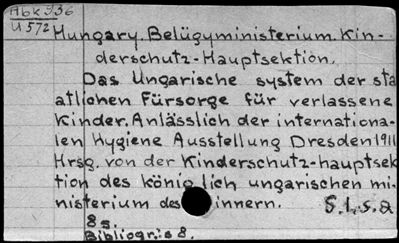 Abk 936
U 572
Hungary. Belügyministerium. Kin-
derschutz-Hauptsektion.
Das Ungarische system der sta
atlichen Fürsorge für verlassene
Kinder. Anlässlich der internationa-
len Hygiene Ausstellung Dresden 1911
Hrsg. von der Kinderschutz-hauptsek
tion des königlich ungarischen mi-
nisterium des innern. S.l., s.a
8 s.
Bibliogr. is 8.